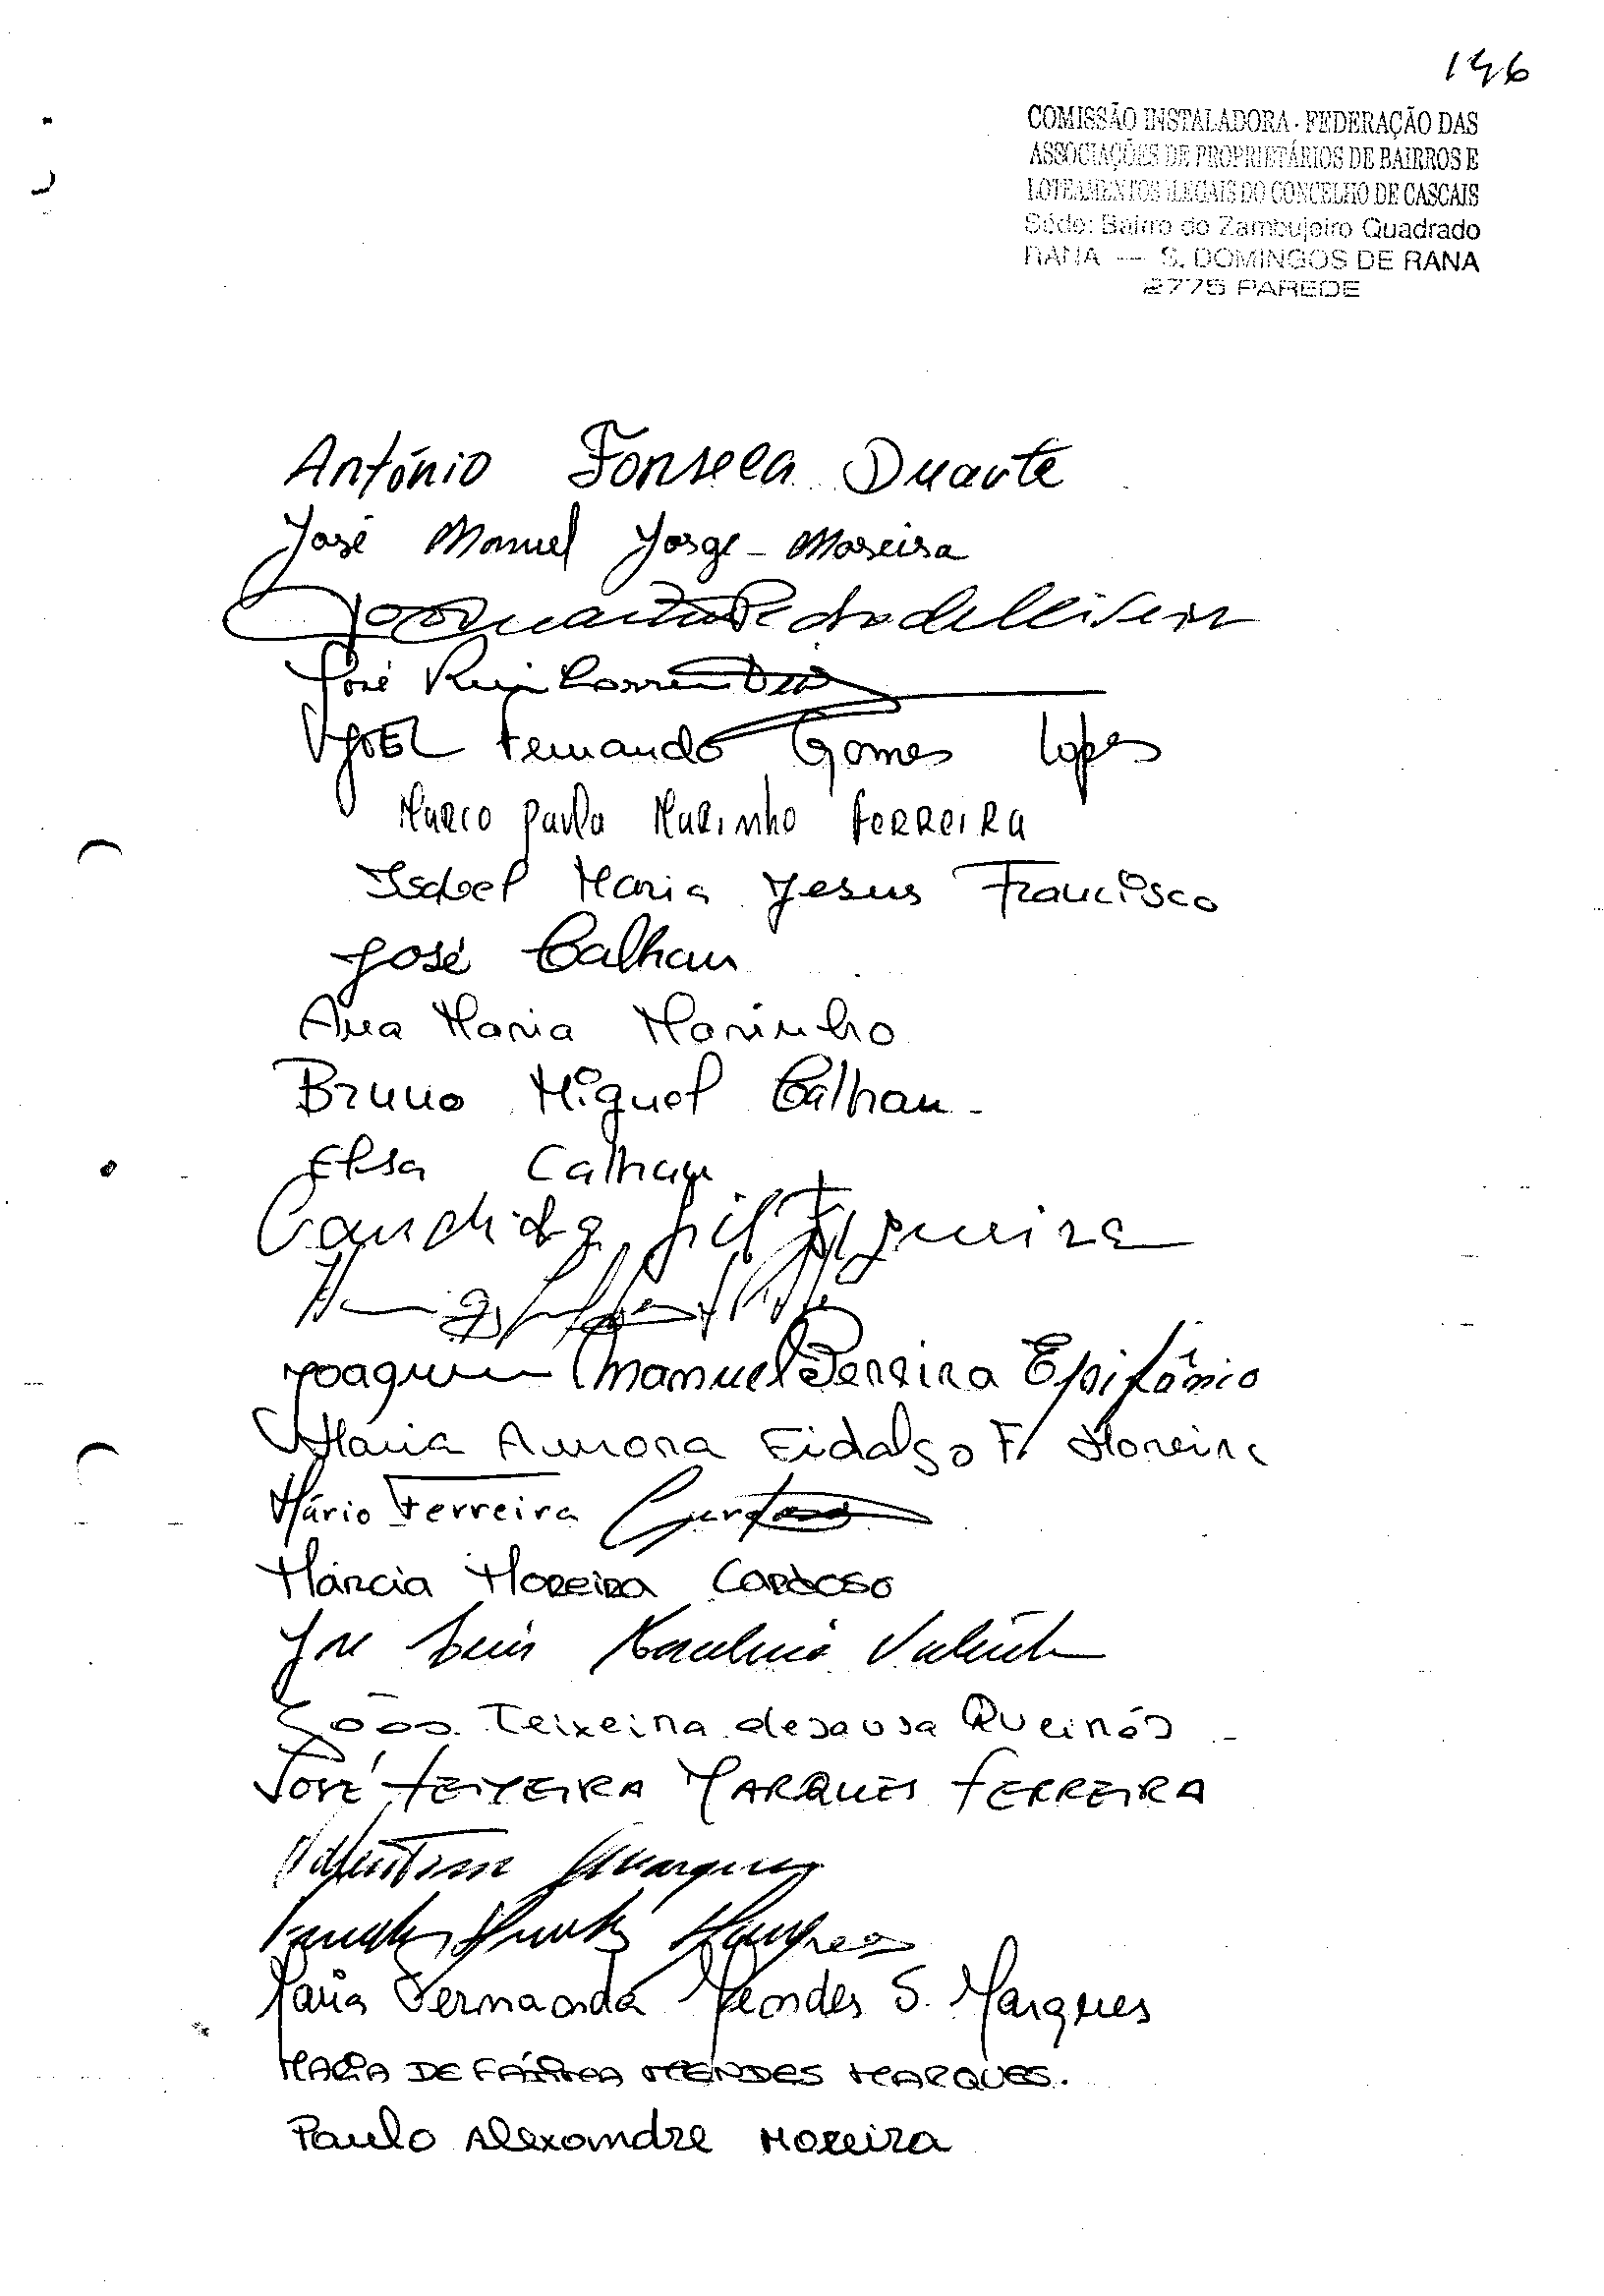 146
COMISSÃO INSTALADORA - FEDERAÇÃO DAS
ASSOCIAÇÕES DE PROPRIETÁRIOS DE BAIRROS E
LOTEAMENTOS ILEGAIS DO CONCELHO DE CASCAIS
Séde: Bairro do Zambujeiro Quadrado
RANA — S. DOMINGOS DE RANA
2775 PAREDE
António Fonseca Duarte
José Manuel Jorge Moreira
José Rui
Joel Fernando Gomes Lopes
Marco Paulo Marinho Ferreira
Isabel Maria Jesus Francisco
José Calhau
Ana Maria Marinho
Bruno Miguel Calhau
Elsa Calhau
Candida Gil Figueira
Joaquim Manuel Pereira Epifânio
Maria Aurora Fidalgo F. Moreira
Mário Ferreira Cardoso
Márcia Moreira Cardoso
José Luis Valente
Teixeira de sousa Queirós
José Teixeira Marques Ferreira
Marques
Maria Fernanda Mendes S. Marques
MARIA DE FÁTIMA MENDES MARQUES.
Paulo Alexandre Moreira